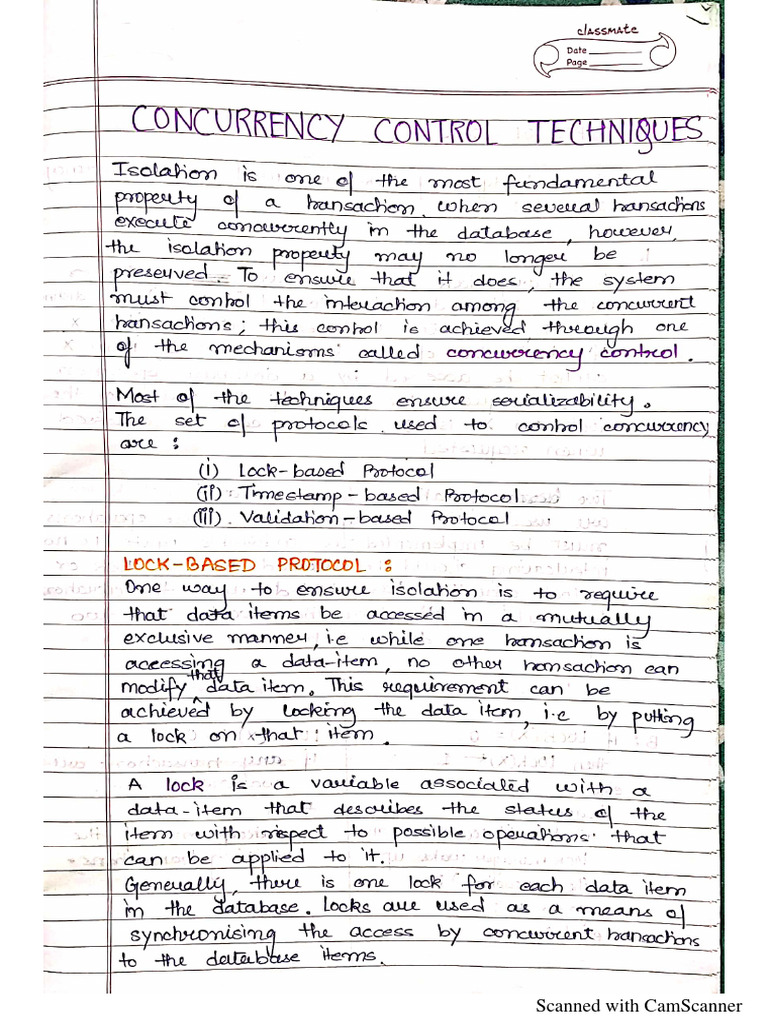 classmate
Date
Page
CONCURRENCY CONTROL TECHNIQUES
Isolation is one of the most fundamental
property of a transaction. when several transactions
execute concurrently in the database, however,
the isolation property may no longer be
preserved. To ensure that it does, the system
must control the interaction among the concurrent
transactions; this control is achieved through one
of the mechanisms called concurrency control.
Most of the techniques ensure serializability.
The set of protocols used to control concurrency
are :
(i) Lock-based Protocol
(ii) Timestamp-based Protocol
(iii) Validation-based Protocol
LOCK-BASED PROTOCOL :
One way to ensure isolation is to require
that data items be accessed in a mutually
exclusive manner, i.e while one transaction is
accessing a data-item, no other transaction can
modify that data item. This requirement can be
achieved by locking the data item, i.e by putting
a lock on that item.
A lock is a variable associated with a
data-item that describes the status of the
item with respect to possible operations that
can be applied to it.
Generally, there is one lock for each data item
in the database. Locks are used as a means of
synchronising the access by concurrent transactions
to the database items.
Scanned with CamScanner